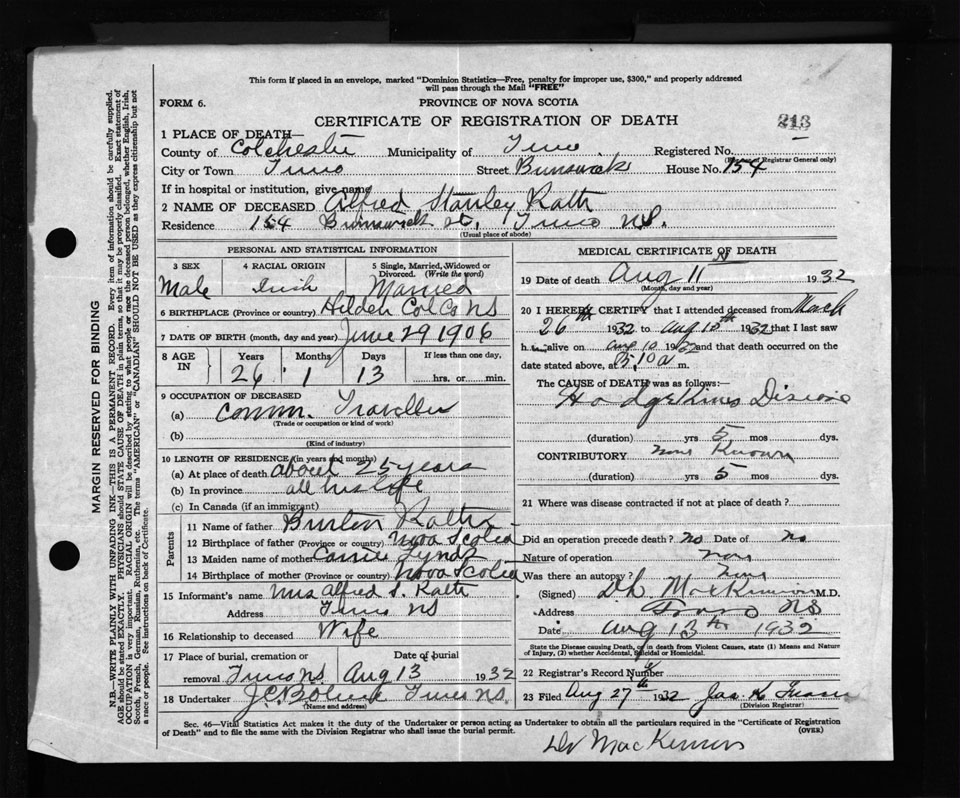 This form if placed in an envelope, marked "Dominion Statistics—Free, penalty for improper use, $300," and properly addressed
will pass through the Mail "FREE"
FORM 6.
PROVINCE OF NOVA SCOTIA
CERTIFICATE OF REGISTRATION OF DEATH
213
1 PLACE OF DEATH—
County of Colchester Municipality of Truro Registered No.
(For use of Registrar General only)
City or Town Truro Street Brunswick House No. 154
If in hospital or institution, give name
2 NAME OF DECEASED Alfred Stanley Rath
Residence 154 Brunswick St, Truro NS.
(Usual place of abode)
PERSONAL AND STATISTICAL INFORMATION
3 SEX 4 RACIAL ORIGIN 5 Single, Married, Widowed or Divorced. (Write the word)
Male Irish Married
6 BIRTHPLACE (Province or country) Hilden Col Co NS
7 DATE OF BIRTH (month, day and year) June 29 1906
8 AGE IN Years Months Days If less than one day,
26 1 13 hrs. or min.
9 OCCUPATION OF DECEASED
(a) Comm. Traveller
(Trade or occupation or kind of work)
(b)
(Kind of industry)
10 LENGTH OF RESIDENCE (in years and months)
(a) At place of death about 25 years
(b) In province all his life
(c) In Canada (if an immigrant)
Parents
11 Name of father Burton Rath
12 Birthplace of father (Province or country) Nova Scotia
13 Maiden name of mother Carrie Lynds
14 Birthplace of mother (Province or country) Nova Scotia
15 Informant's name Mrs Alfred S. Rath
Address Truro NS
16 Relationship to deceased Wife
17 Place of burial, cremation or Date of burial
removal Truro NS Aug 13 1932
18 Undertaker Truro NS.
(Name and address)
MEDICAL CERTIFICATE OF DEATH
19 Date of death Aug 11 1932
(Month, day and year)
20 I HEREBY CERTIFY that I attended deceased from March
26th 1932 to Aug 10th 1932 that I last saw
h alive on Aug 10 1932 and that death occurred on the
date stated above, at 5.10 a m.
The CAUSE OF DEATH was as follows:
Hodgkins Disease
(duration) yrs 5 mos dys.
CONTRIBUTORY None Known
(duration) yrs 5 mos dys.
21 Where was disease contracted if not at place of death?
Did an operation precede death? no Date of no
Nature of operation none
Was there an autopsy? none
(Signed) D.h. MacKinnon M.D.
Address Truro NS
Date Aug 13th 1932
State the Disease causing Death, or in death from Violent Causes, state (1) Means and Nature of Injury, (2) whether Accidental, Suicidal or Homicidal.
22 Registrar's Record Number
23 Filed Aug 27th 1932 Jas. K
(Division Registrar)
Sec. 46—Vital Statistics Act makes it the duty of the Undertaker or person acting as Undertaker to obtain all the particulars required in the "Certificate of Registration
of Death" and to file the same with the Division Registrar who shall issue the burial permit. (OVER)
Dr MacKinnon
MARGIN RESERVED FOR BINDING
N.B.—WRITE PLAINLY WITH UNFADING INK—THIS IS A PERMANENT RECORD. Every item of information should be carefully supplied.
AGE should be stated EXACTLY. PHYSICIANS should STATE CAUSE OF DEATH in plain terms, so that it may be properly classified. Exact statement of
OCCUPATION is very important. RACIAL ORIGIN will be described by stating to what people or race the deceased person belonged, whether English, Irish,
Scotch, French, German, Russian, Ruthenian, etc. The terms "AMERICAN" or "CANADIAN" SHOULD NOT BE USED as they express citizenship but not
a race or people. See instructions on back of Certificate.